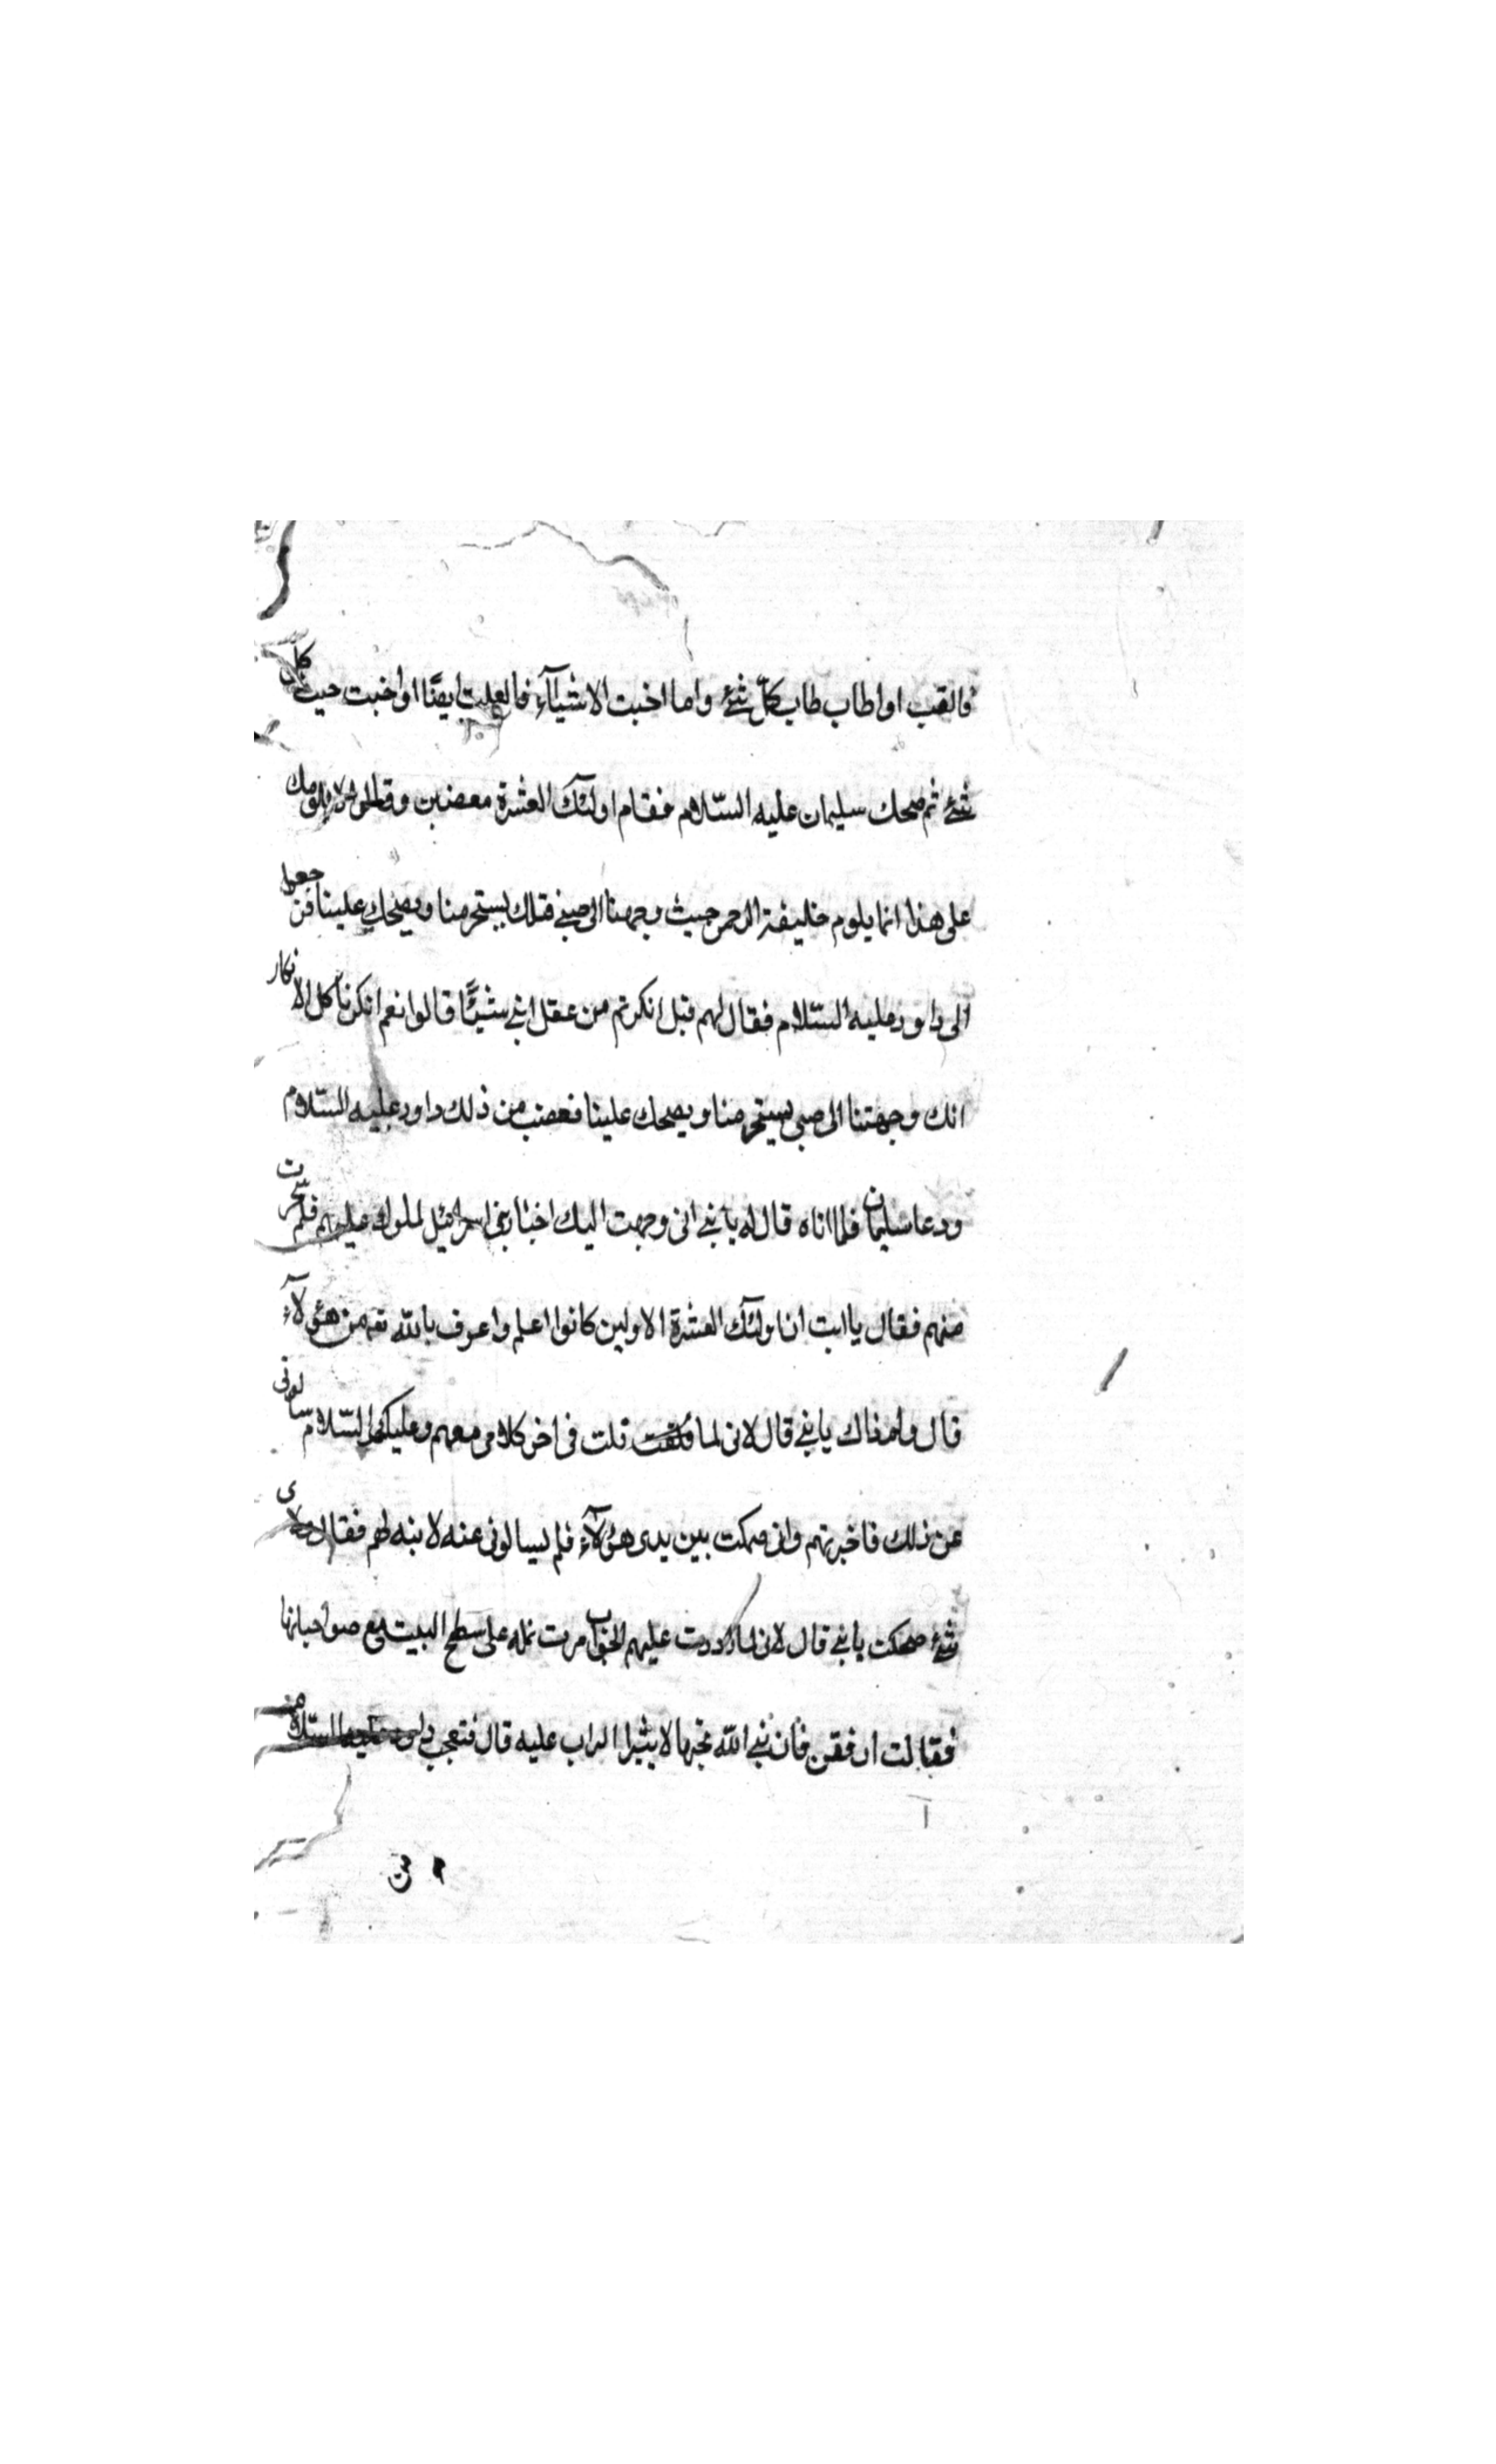 فالقلب اذا طاب طاب كلّ شئ واما اخبت الاشيآء فالقلب ايضًا اذا خبت خبث كل
شئ ثم ضحك سليمان عليه السّلام فقام اولئك العشرة مغضبين وقالوا لا يلومك
على هذا انما يلوم خليفة الرحمن حيث وجهنا الى صبى مثلك يستخر منا ويضحك علينا فرجعوا
الى داود عليه السّلام فقال لهم هل انكرتم من عقل ابنى شيئًا قالوا نعم انكرنا كل الانكار
انك وجهتنا الى صبى يستخر منا ويضحك علينا فغضب من ذلك داود عليه السّلام
ودعا سليمان فلما اتاه قال له يا بنى انى وجهت اليك اخيار بنى اسرائيل لملوك عليهم فلم سخرت
منهم فقال يا ابت ان اولئك العشرة الاولين كانوا اعلم واعرف بالله من هؤلآء
قال ولم ذاك يا بنى قال لانى لما قلت فى اخر كلامى معهم وعليكم السّلام سالونى
عن ذلك فاخبرتهم وانى ضحكت بين يدى هؤلآء فلم يسالونى عنه لابنه لهم فقال ولاى
شئ ضحكت يا بنى قال لانى لما رددت عليهم الجواب مرت نملة على سطح البيت مع صواحباتها
فقالت ارفقن فان نبى الله تحتها لا يثير التراب عليه قال فتعجب داود عليه السّلام من